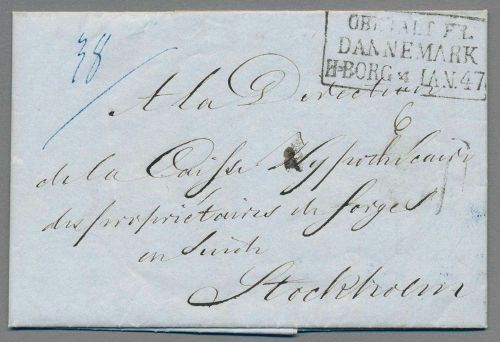 38
OBETALT FR.
DANNEMARK
H-BORG 4 JAN. 47
A la Direction
de la Caisse Hypothécaire
des propriétaires de forges
en Suède
Stockholm